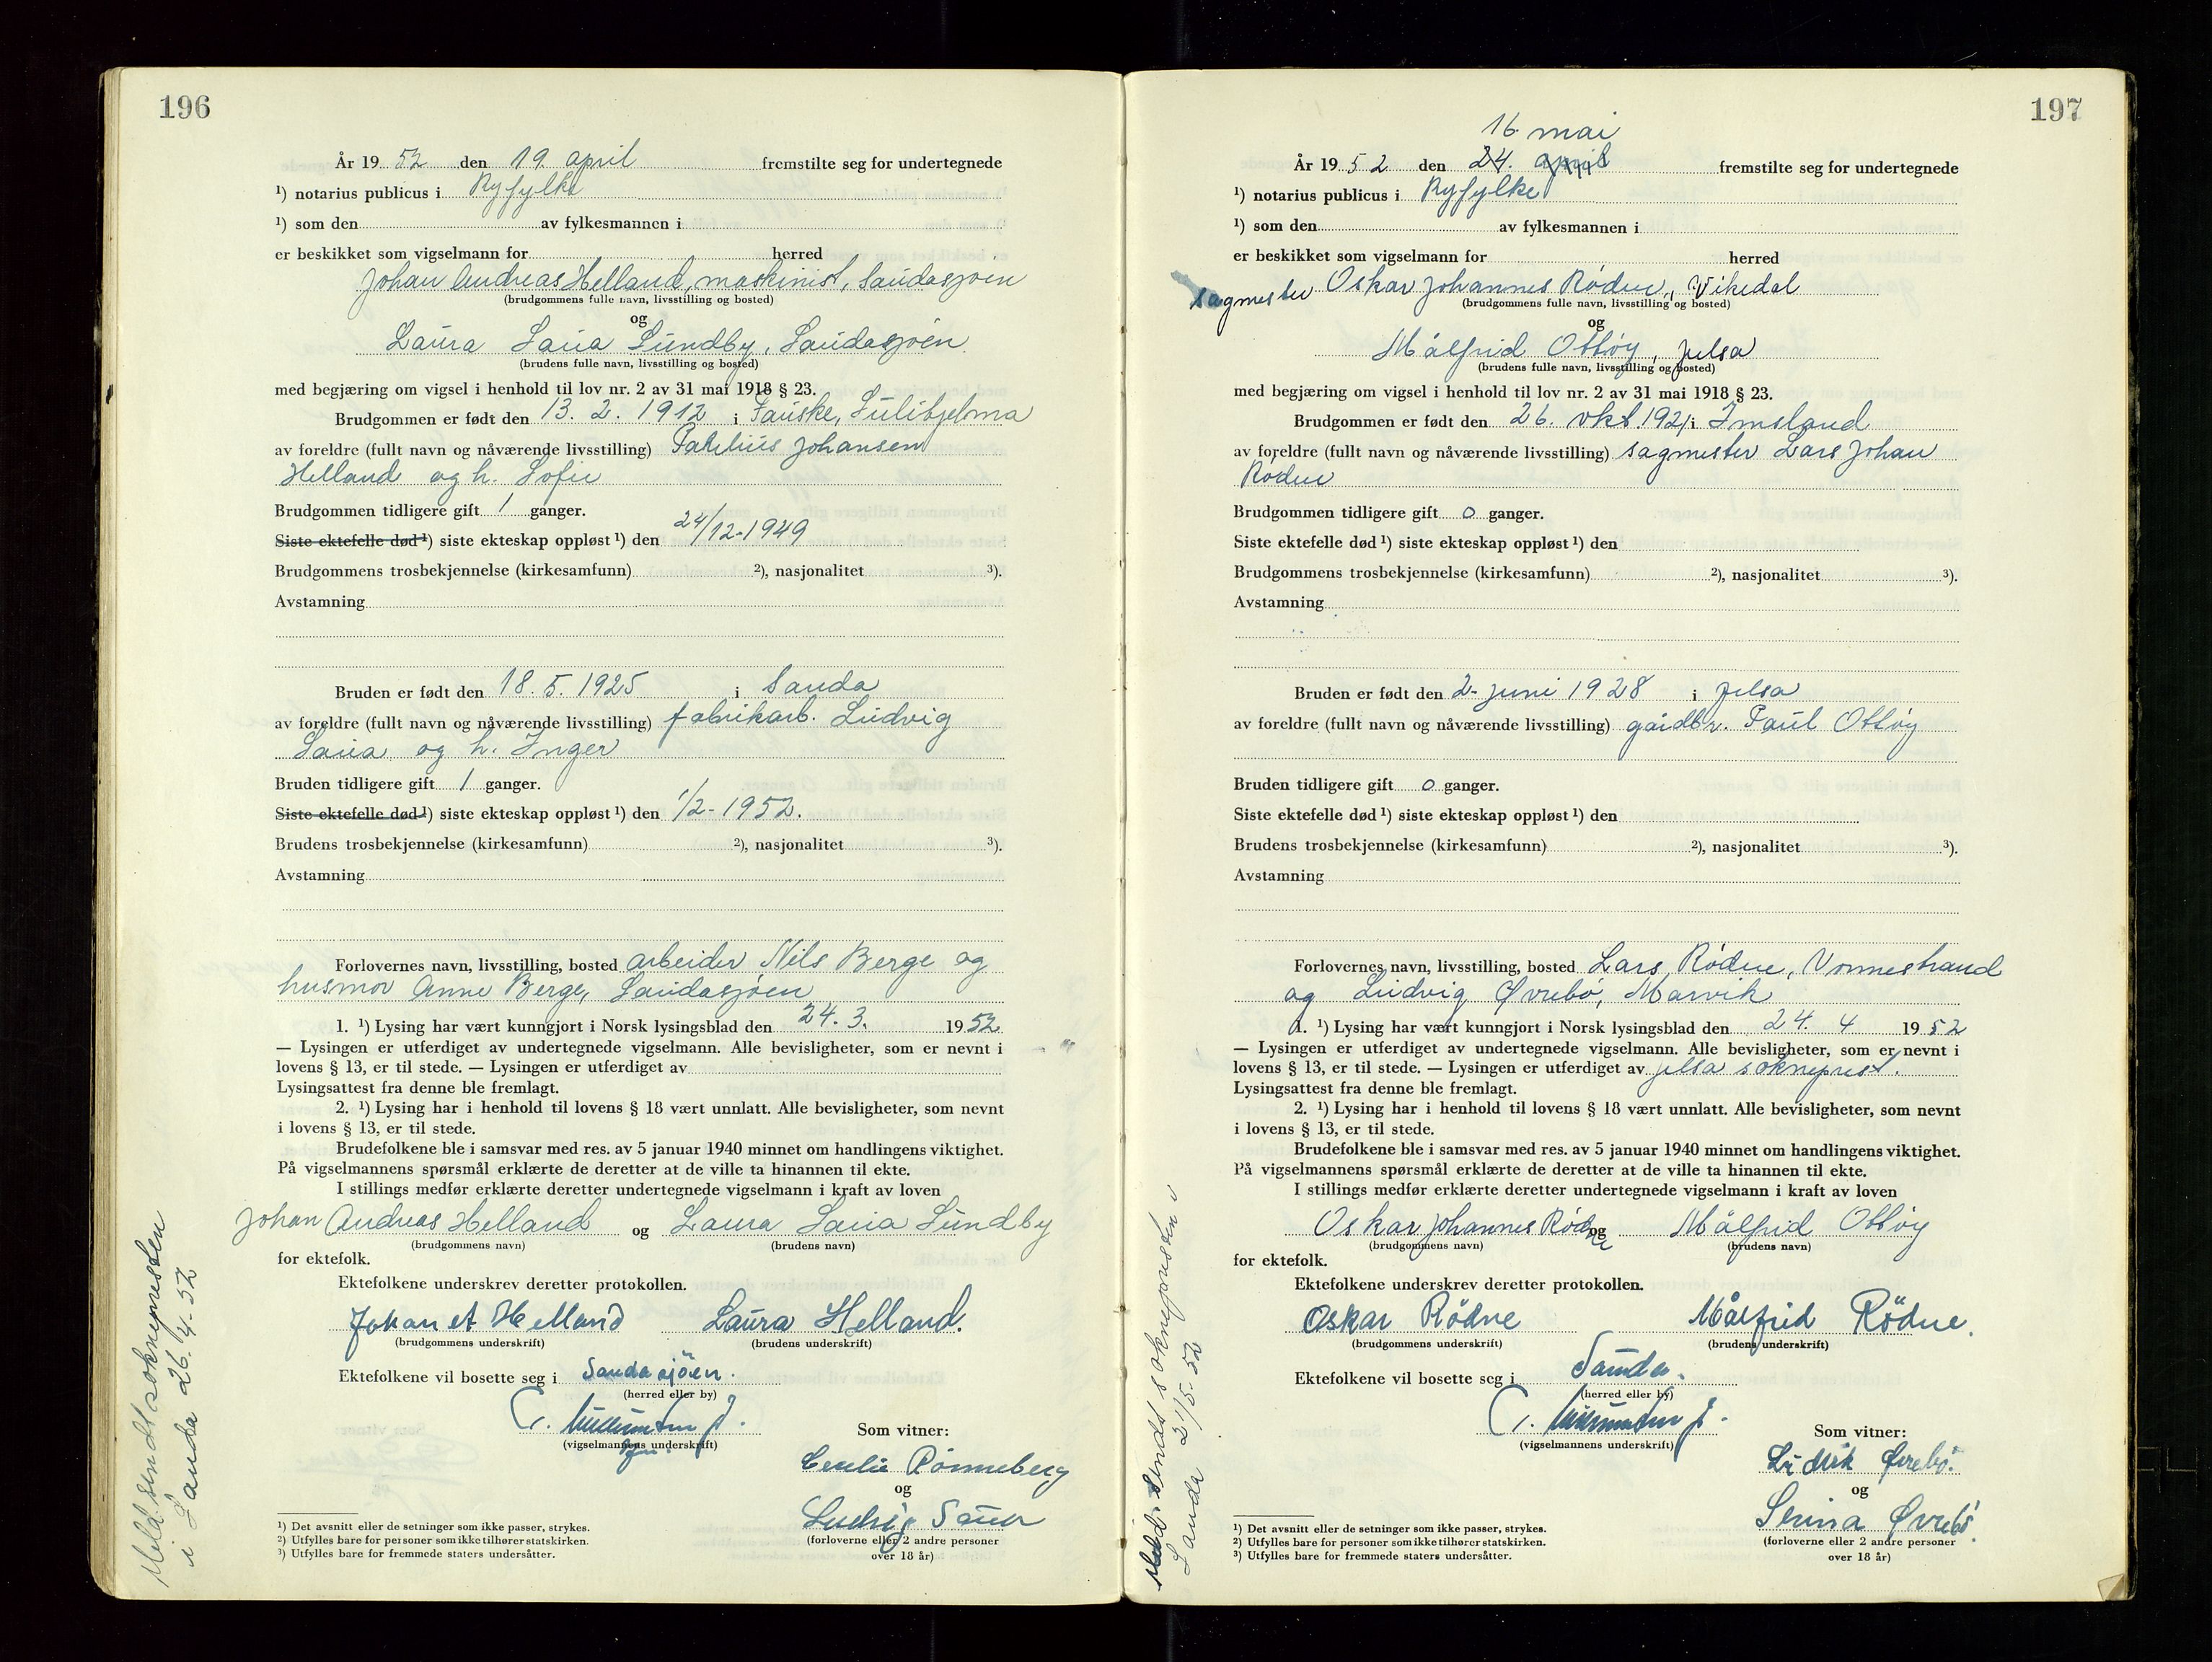 196
År 19 52 den 19. april fremstilte seg for undertegnede
¹) notarius publicus i Ryfylke
¹) som den av fylkesmannen i
er beskikket som vigselmann for herred
Johan Andreas Helland, maskinist, Saudasjøen
(brudgommens fulle navn, livsstilling og bosted)
og
Laura Saua Sundby, Saudasjøen
(brudens fulle navn, livsstilling og bosted)
med begjæring om vigsel i henhold til lov nr. 2 av 31 mai 1918 § 23.
Brudgommen er født den 13. 2. 1912 i Fauske, Sulitjelma
av foreldre (fullt navn og nåværende livsstilling) Johansen
Helland og h. Sofie
Brudgommen tidligere gift 1 ganger.
Siste ektefelle død ¹) siste ekteskap oppløst ¹) den 24/12-1949
Brudgommens trosbekjennelse (kirkesamfunn) ²), nasjonalitet ³).
Avstamning
Bruden er født den 18. 5. 1925 i Sauda
av foreldre (fullt navn og nåværende livsstilling) fabrikarb. Ludvig
Saua og h. Inger
Bruden tidligere gift 1 ganger.
Siste ektefelle død ¹) siste ekteskap oppløst ¹) den 1/2-1952.
Brudens trosbekjennelse (kirkesamfunn) ²), nasjonalitet ³).
Avstamning
Forlovernes navn, livsstilling, bosted arbeider Nils Berge og
husmor Anne Berge, Saudasjøen
1. ¹) Lysing har vært kunngjort i Norsk lysingsblad den 24. 3. 1952
— Lysingen er utferdiget av undertegnede vigselmann. Alle bevisligheter, som er nevnt i
lovens § 13, er til stede. — Lysingen er utferdiget av
Lysingsattest fra denne ble fremlagt.
2. ¹) Lysing har i henhold til lovens § 18 vært unnlatt. Alle bevisligheter, som nevnt
i lovens § 13, er til stede.
Brudefolkene ble i samsvar med res. av 5 januar 1940 minnet om handlingens viktighet.
På vigselmannens spørsmål erklærte de deretter at de ville ta hinannen til ekte.
I stillings medfør erklærte deretter undertegnede vigselmann i kraft av loven
Johan Andreas Helland og Laura Saua Sundby
(brudgommens navn) (brudens navn)
for ektefolk.
Ektefolkene underskrev deretter protokollen.
Johan A Helland Laura Helland.
(brudgommens underskrift) (brudens underskrift)
Ektefolkene vil bosette seg i Saudasjöen.
(herred eller by)
(vigselmannens underskrift)
Som vitner:
Cecilie Rønneberg
og
Ludvig Saua
(forloverne eller 2 andre personer
over 18 år)
¹) Det avsnitt eller de setninger som ikke passer, strykes.
²) Utfylles bare for personer som ikke tilhører statskirken.
³) Utfylles bare for fremmede staters undersåtter.
Meld. sendt soknepresten
i Sauda 26.4-52
197
16. mai
År 19 52 den 24. april fremstilte seg for undertegnede
¹) notarius publicus i Ryfylke
¹) som den av fylkesmannen i
er beskikket som vigselmann for herred
sagmester Oskar Johannes Rødne, Vikedal
(brudgommens fulle navn, livsstilling og bosted)
og
Målfrid Ottøy, Jelsa
(brudens fulle navn, livsstilling og bosted)
med begjæring om vigsel i henhold til lov nr. 2 av 31 mai 1918 § 23.
Brudgommen er født den 26. okt. 1921 i Imsland
av foreldre (fullt navn og nåværende livsstilling) sagmester Lars Johan
Rødne
Brudgommen tidligere gift 0 ganger.
Siste ektefelle død ¹) siste ekteskap oppløst ¹) den
Brudgommens trosbekjennelse (kirkesamfunn) ²), nasjonalitet ³).
Avstamning
Bruden er født den 2. juni 1928 i Jelsa
av foreldre (fullt navn og nåværende livsstilling) gardbr. Paul Ottøy
Bruden tidligere gift 0 ganger.
Siste ektefelle død ¹) siste ekteskap oppløst ¹) den
Brudens trosbekjennelse (kirkesamfunn) ²), nasjonalitet ³).
Avstamning
Forlovernes navn, livsstilling, bosted Lars Rødne, Vormestrand
og Ludvig Øvrebø, Marvik
1. ¹) Lysing har vært kunngjort i Norsk lysingsblad den 24. 4 1952
— Lysingen er utferdiget av undertegnede vigselmann. Alle bevisligheter, som er nevnt i
lovens § 13, er til stede. — Lysingen er utferdiget av Jelsa sokneprest.
Lysingsattest fra denne ble fremlagt.
2. ¹) Lysing har i henhold til lovens § 18 vært unnlatt. Alle bevisligheter, som nevnt
i lovens § 13, er til stede.
Brudefolkene ble i samsvar med res. av 5 januar 1940 minnet om handlingens viktighet.
På vigselmannens spørsmål erklærte de deretter at de ville ta hinannen til ekte.
I stillings medfør erklærte deretter undertegnede vigselmann i kraft av loven
Oskar Johannes Rødne og Målfrid Ottøy
(brudgommens navn) (brudens navn)
for ektefolk.
Ektefolkene underskrev deretter protokollen.
Oskar Rödne Målfrid Rödne.
(brudgommens underskrift) (brudens underskrift)
Ektefolkene vil bosette seg i Sauda.
(herred eller by)
(vigselmannens underskrift)
Som vitner:
Øvrebø.
og
Serina Øvrebø.
(forloverne eller 2 andre personer
over 18 år)
¹) Det avsnitt eller de setninger som ikke passer, strykes.
²) Utfylles bare for personer som ikke tilhører statskirken.
³) Utfylles bare for fremmede staters undersåtter.
Meld. sendt soknepresten i
Sauda 21/5-52